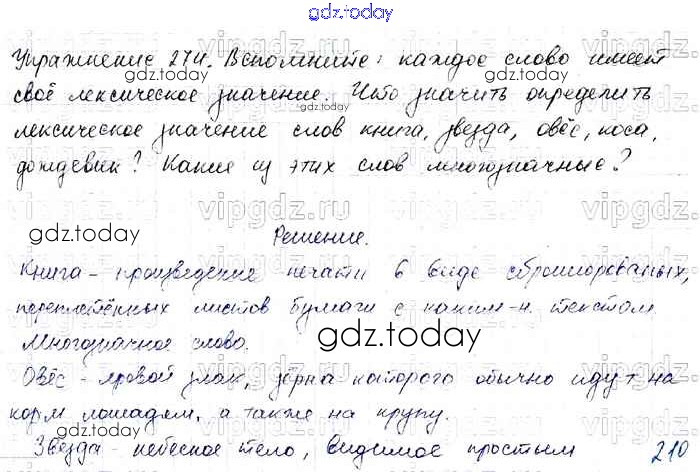 gdz.today
Упражнение 274. Вспомните: каждое слово имеет
gdz.today
своё лексическое значение. Что значить определить
лексическое значение слов книга, звезда, овёс, коса,
gdz.today
дождевик? Какие из этих слов многозначные?
vipgdz.ru vipgdz.ru vipgdz
gdz.today
Решение.
Книга - произведение печати в виде сброшированных,
переплетённых листов бумаги с каким-н. текстом.
gdz.today
Многозначное слово.
Овёс - яровой злак, зёрна которого обычно идут на
корм лошадям, а также на крупу.
Звезда - небесное тело, видимое простым
210